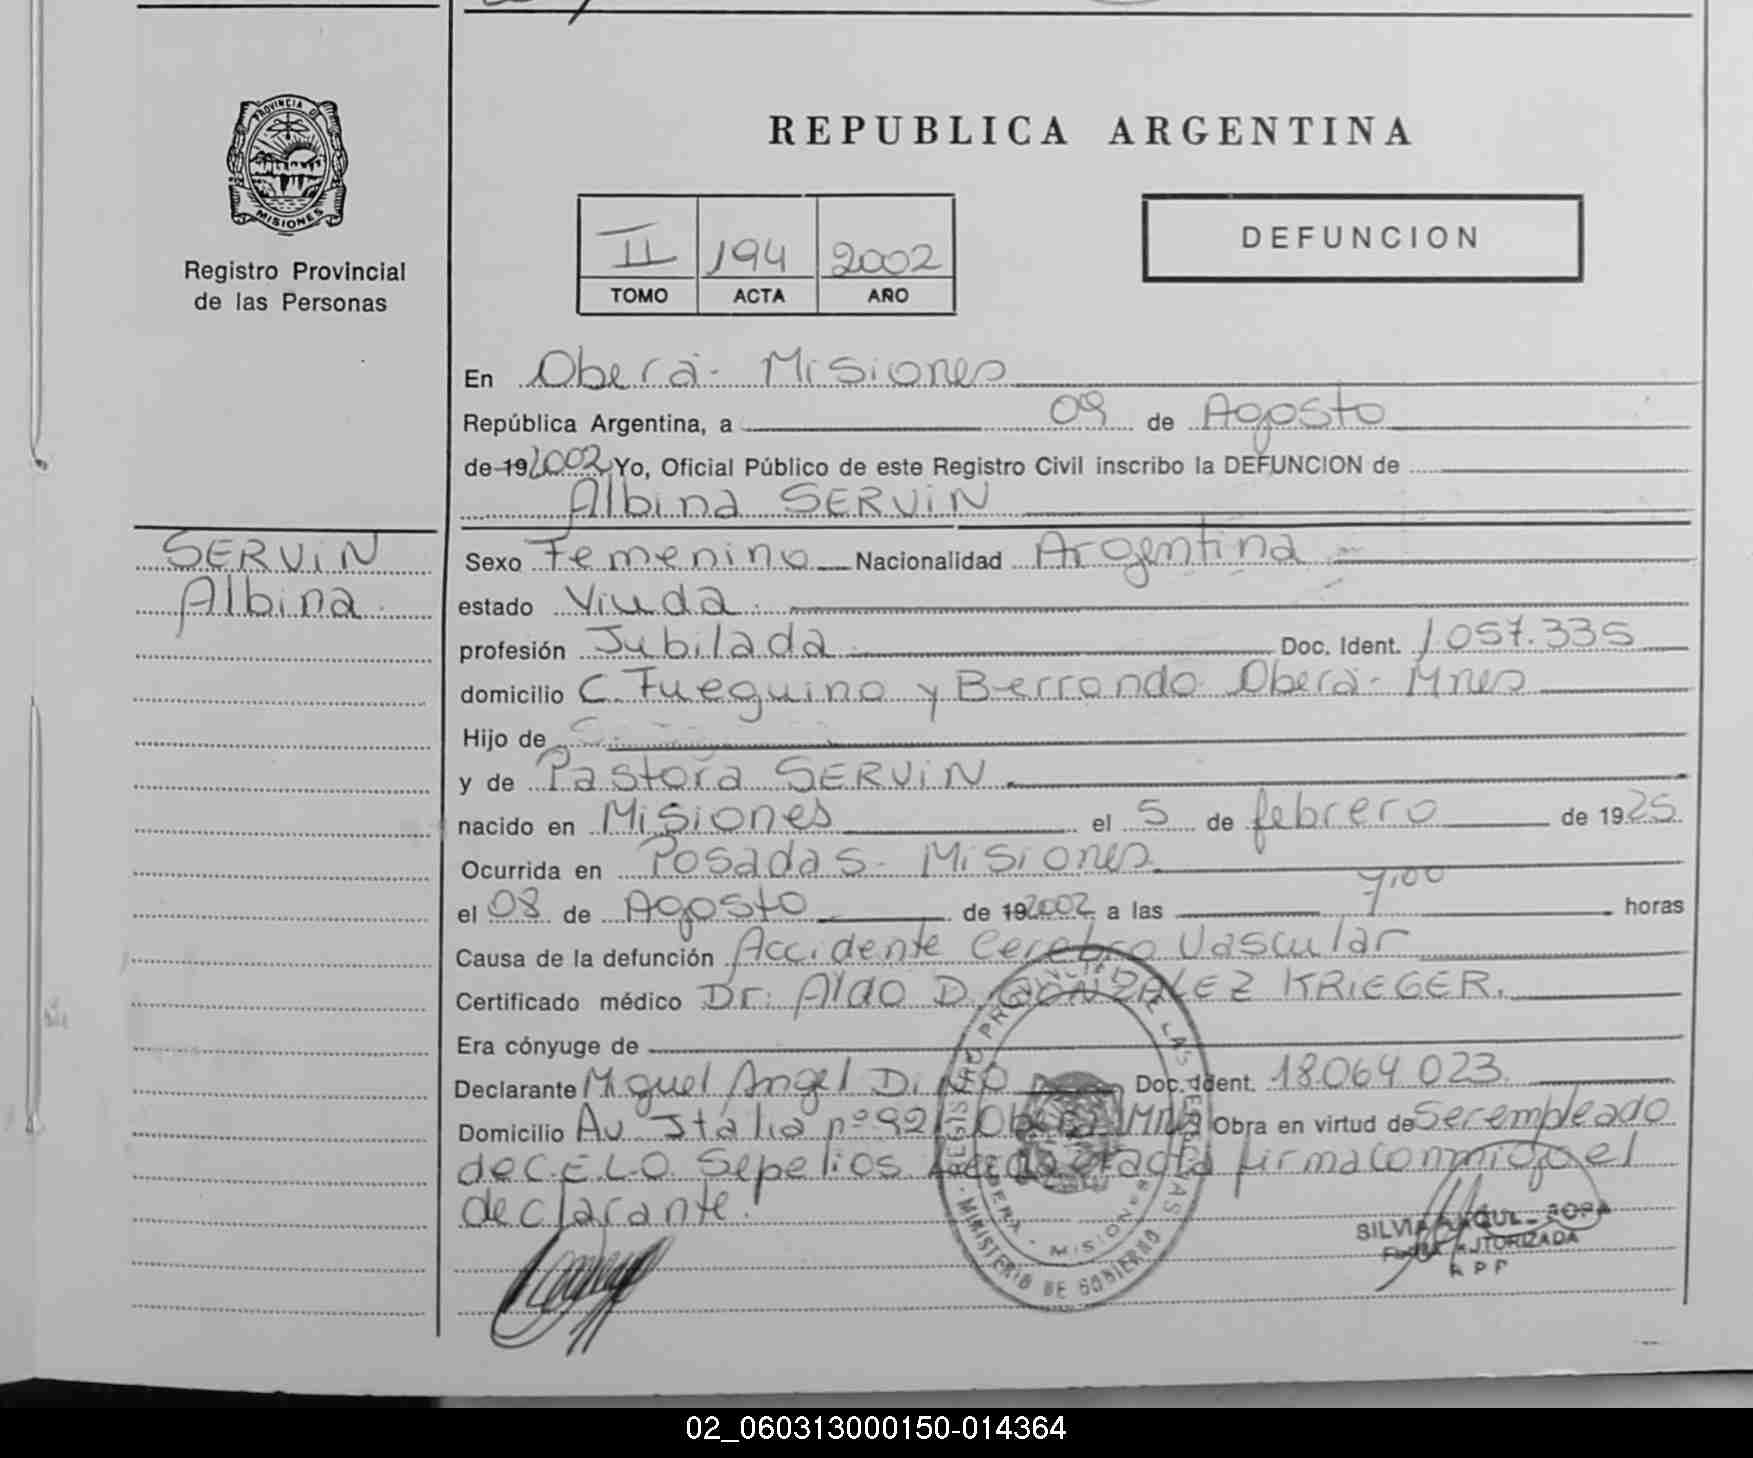 PROVINCIA DE
MISIONES
Registro Provincial
de las Personas
REPUBLICA ARGENTINA
II 194 2002
TOMO ACTA AÑO
DEFUNCION
En Oberá - Misiones
República Argentina, a 09 de Agosto
de 19 2002 Yo, Oficial Público de este Registro Civil inscribo la DEFUNCION de
Albina SERViN
SERViN
Albina
Sexo Femenino Nacionalidad Argentina
estado Viuda
profesión Jubilada Doc. Ident. 1.057.335
domicilio C. Fueguino y Berrondo Oberá - Mnes
Hijo de
y de Pastora SERViN
nacido en Misiones el 5 de febrero de 1925
Ocurrida en Posadas - Misiones
el 08 de Agosto de 19 2002 a las 7,00 horas
Causa de la defunción Accidente Cerebro Vascular
Certificado médico Dr. Aldo D. GONZALEZ KRIEGER.
Era cónyuge de
Declarante Miguel Angel Doc. Ident. 18.064.023
Domicilio Av. Italia nº 92 Oberá Mnes Obra en virtud de Ser empleado
de C.E.L.O. Sepelios acta firma conmigo el
declarante.
REGISTRO PROVINCIAL DE LAS PERSONAS
MINISTERIO DE GOBIERNO
OBERA - MISIONES
SILVIA
AUTORIZADA
02_060313000150-014364